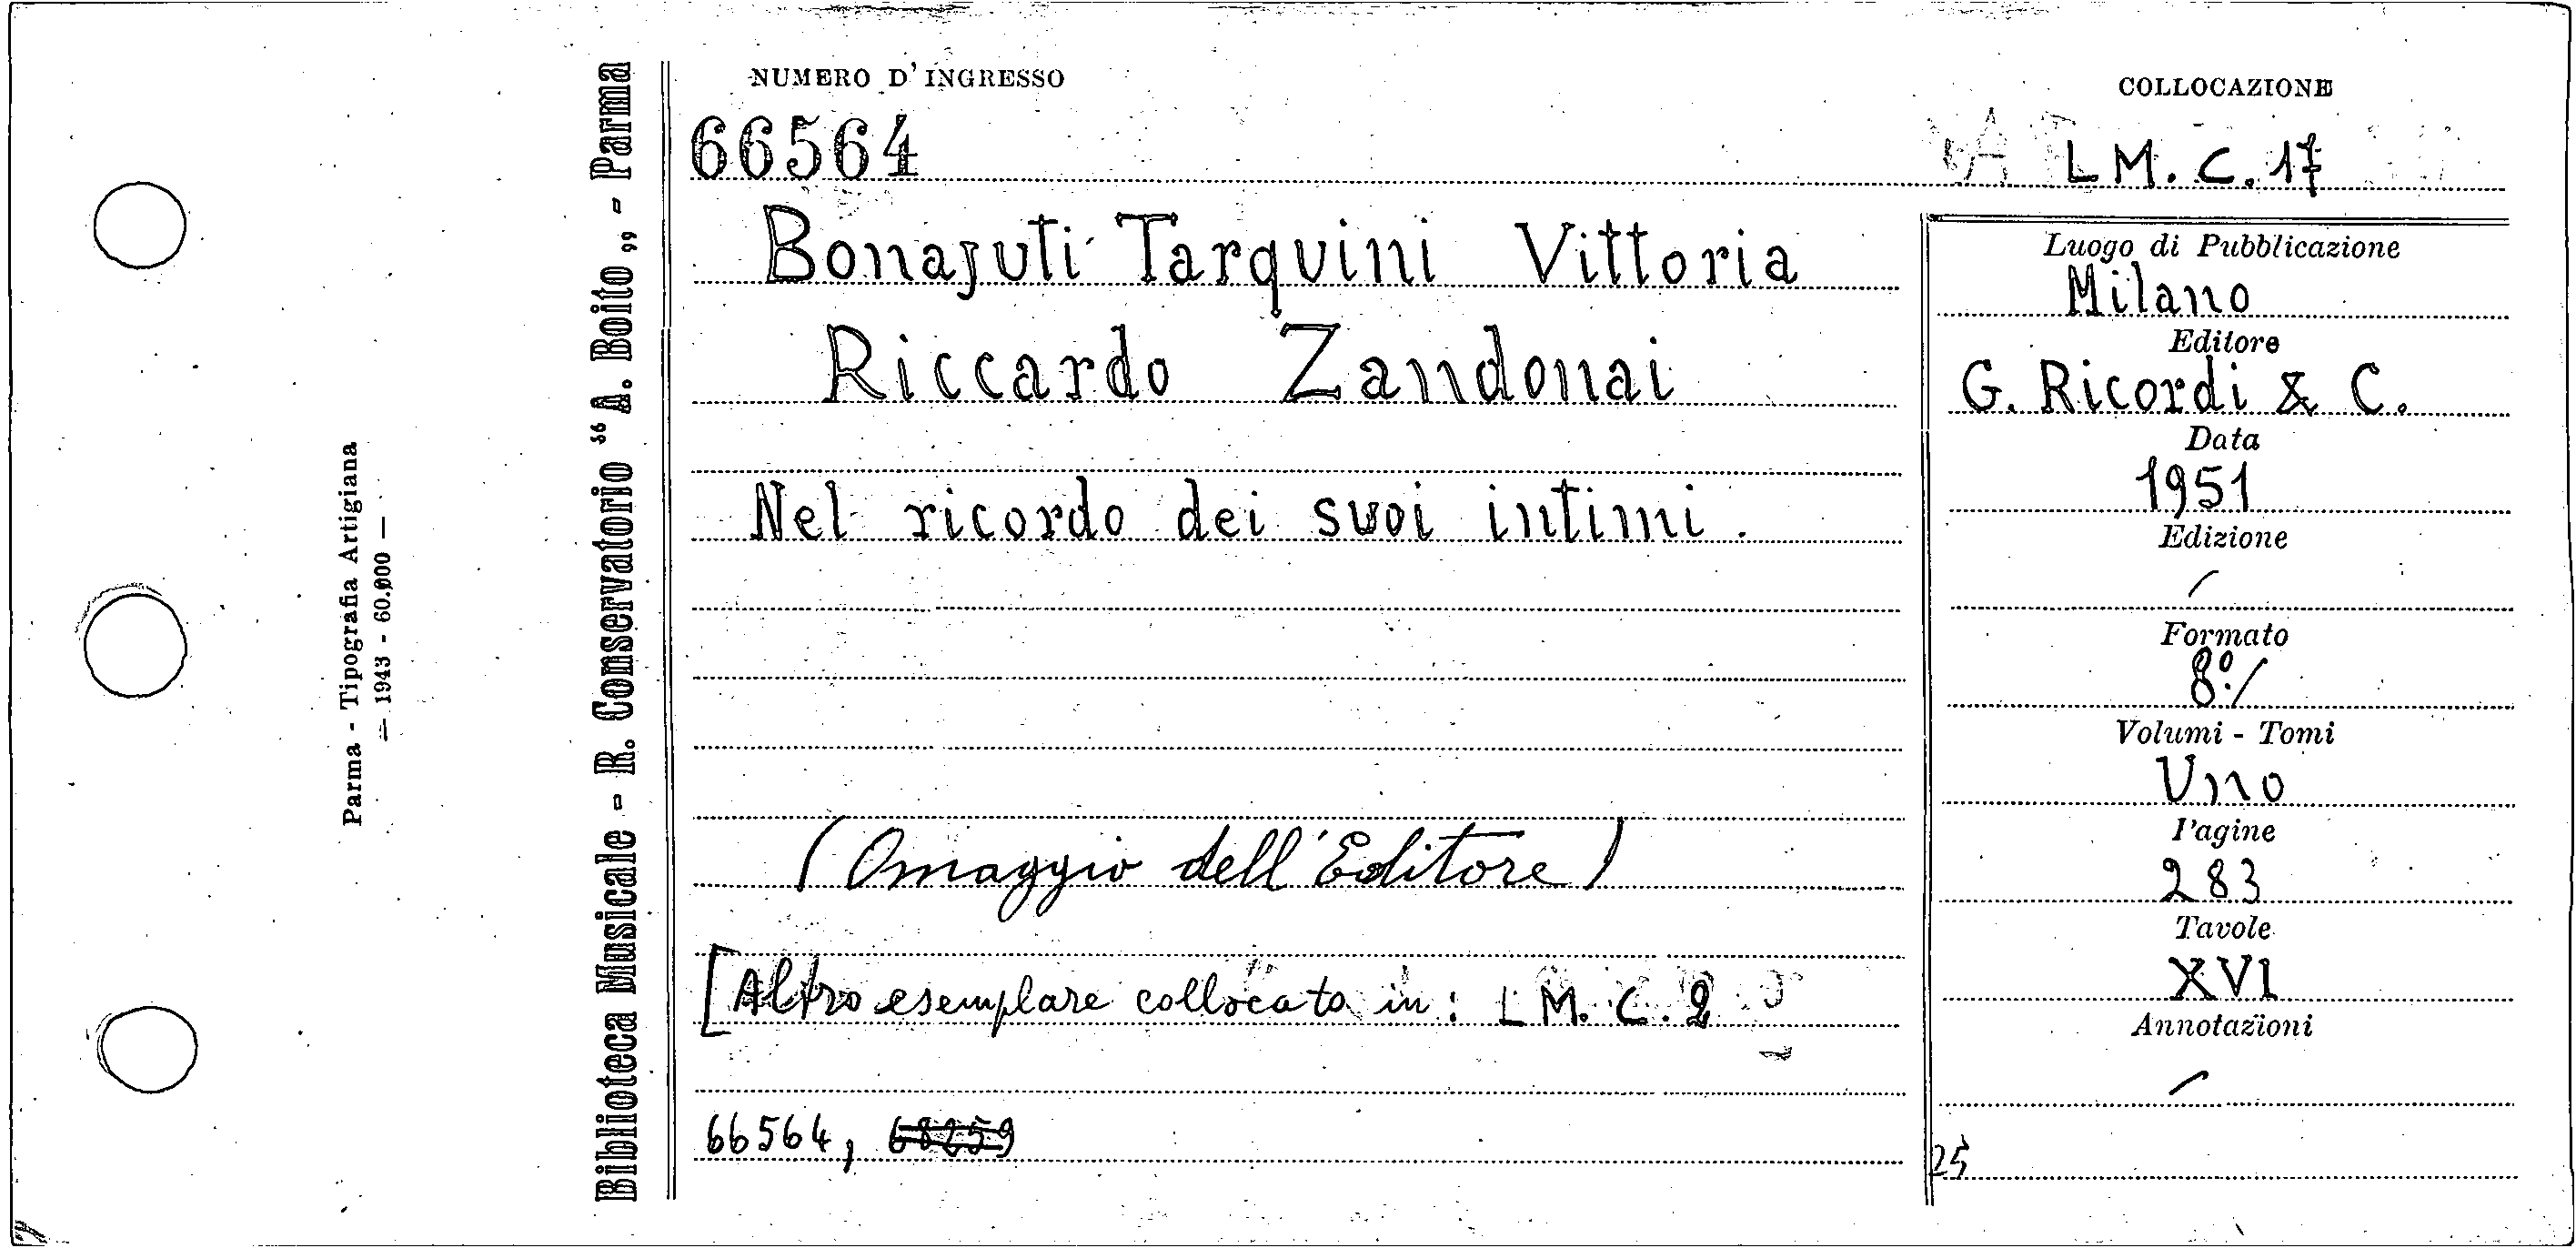 Parma - Tipografia Artigiana
— 1943 - 60.000 —
Biblioteca Musicale - R. Conservatorio “A. Boito„ - Parma
NUMERO D'INGRESSO
66564
COLLOCAZIONE
LM. C. 17
Bonajuti Tarquini Vittoria
Riccardo Zandonai
Nel ricordo dei suoi intimi.
(Omaggio dell'Editore)
[Altro esemplare collocato in: LM. C. 2
66564, 68259
Luogo di Pubblicazione
Milano
Editore
G. Ricordi & C.
Data
1951
Edizione
/
Formato
8º./
Volumi - Tomi
Uno
Pagine
283
Tavole
XVI
Annotazioni
/
25